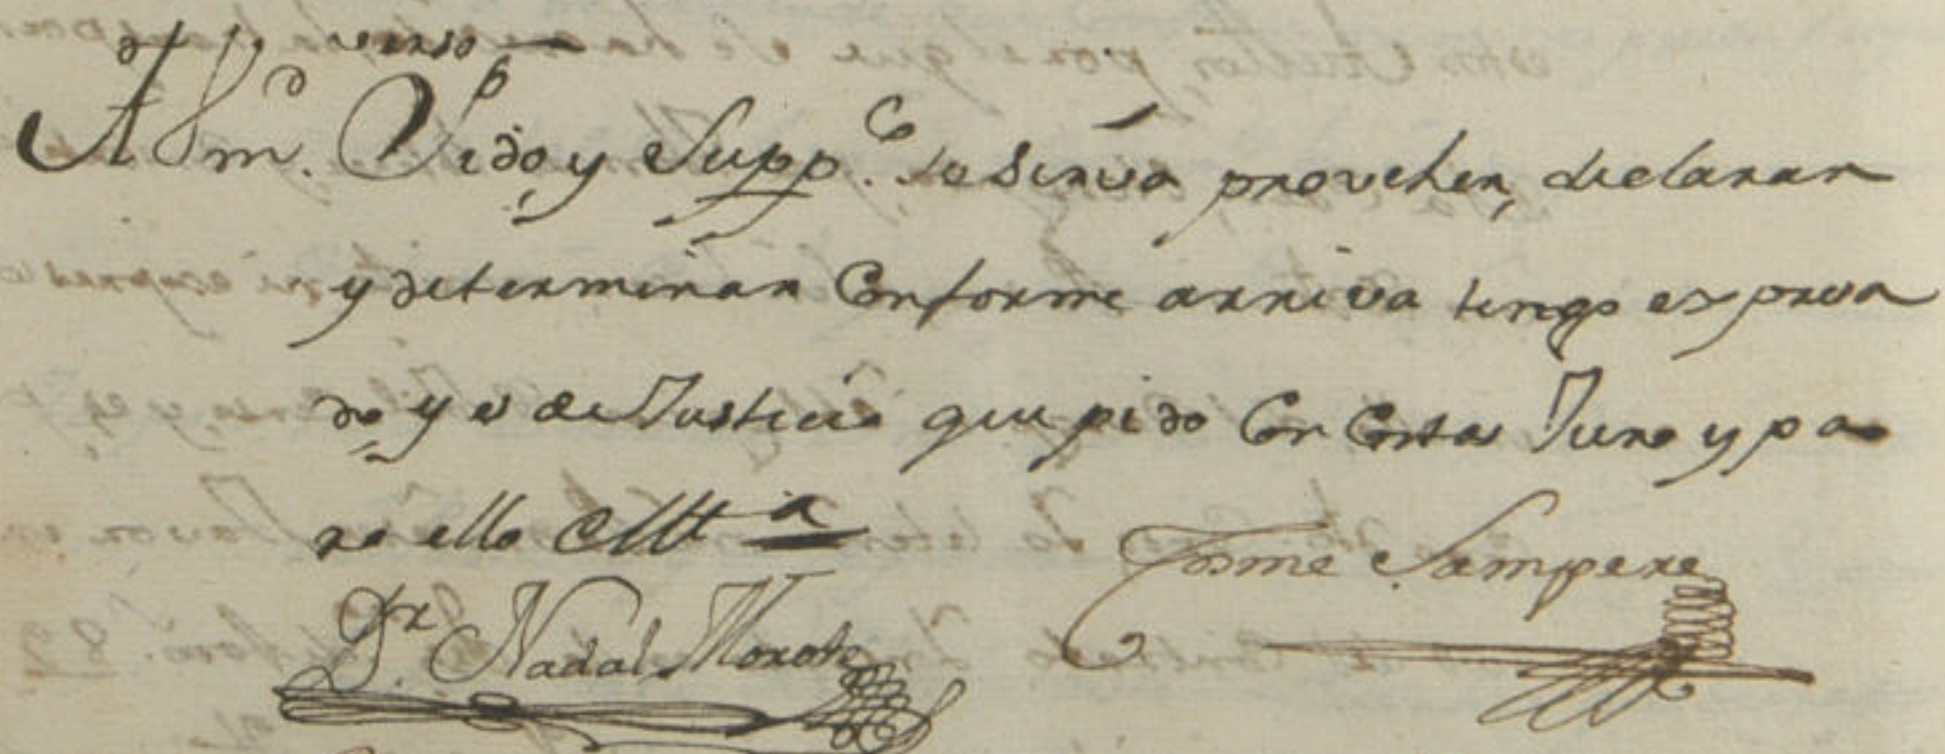 verso
A Vm.d Pido y Supp.co se sirva proveher, declarar
y determinar Conforme arriva tengo expresa
do y es de Justicia que pido Con Costas Juro y pa
ra ello &tt.a
Dr. Nadal Moxote
Cosme Sampere